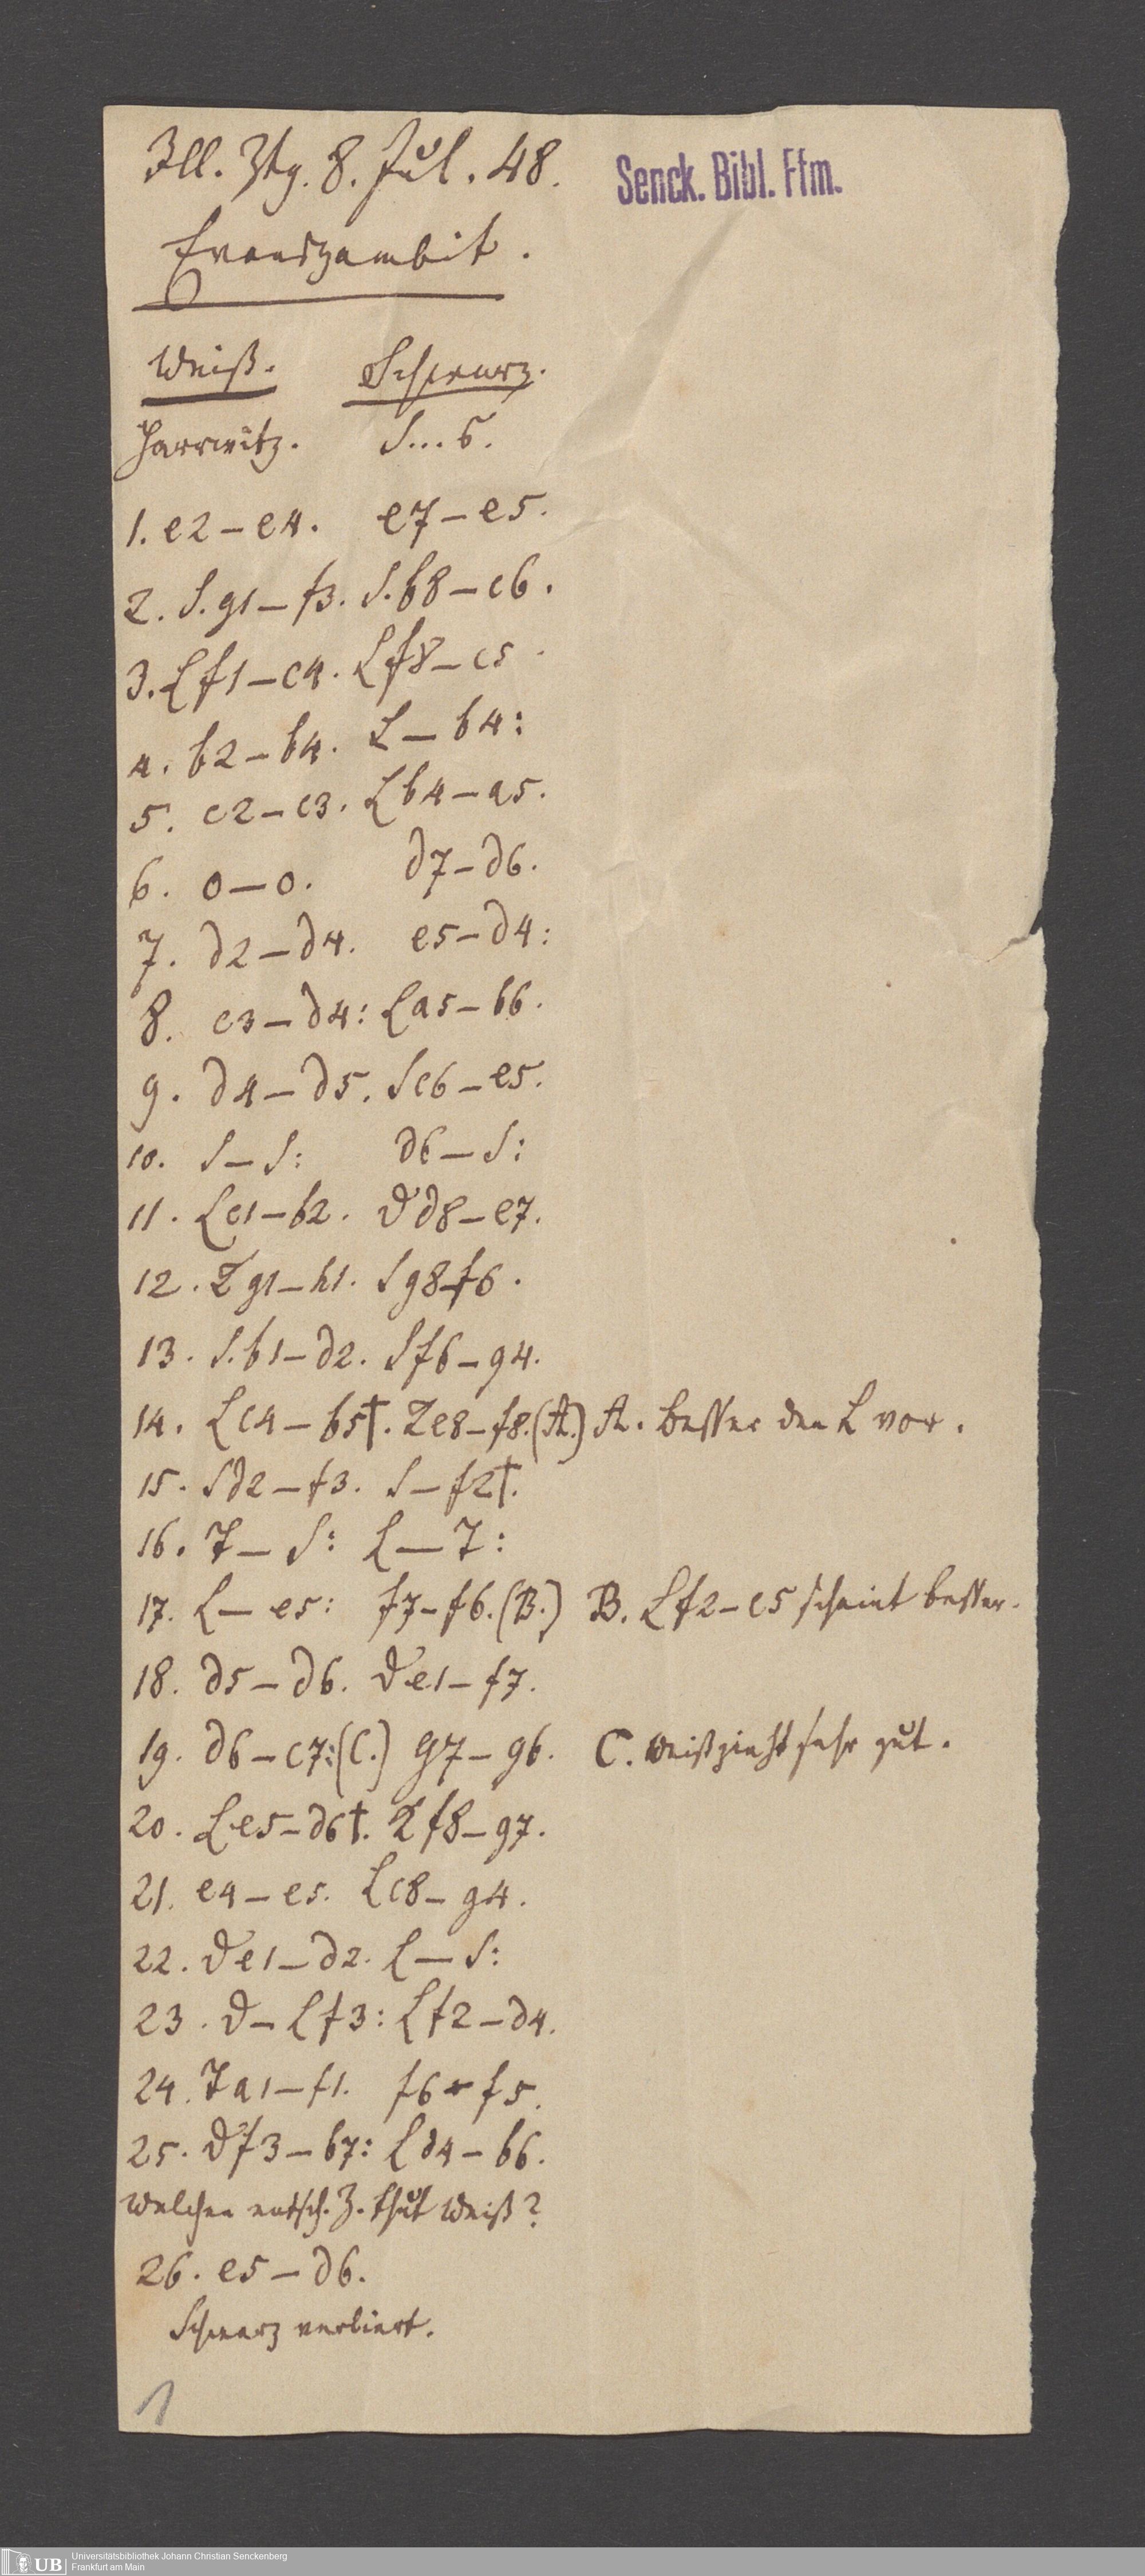 Ill. Ztg. 8. Jul. 48.
Senck. Bibl. Ffm.
Evansgambit.
Weiß. Schwarz.
Harrwitz. S...s.
1. e2 – e4. e7 – e5.
2. S. g1 – f3. S. b8 – c6.
3. L f1 – c4. L f8 – c5.
4. b2 – b4. L – b4:
5. c2 – c3. L b4 – a5.
6. 0 – 0. d7 – d6.
7. d2 – d4. e5 – d4:
8. c3 – d4: L a5 – b6.
9. d4 – d5. S c6 – e5.
10. S – S: d6 – S:
11. L c1 – b2. D d8 – e7.
12. K g1 – h1. S g8 – f6.
13. S. b1 – d2. S f6 – g4.
14. L c4 – b5†. K e8 – f8. (A.) A. besser den L vor.
15. S d2 – f3. S – f2†.
16. T – S: L – T:
17. L – e5: f7 – f6. (B.) B. L f2 – c5 scheint besser.
18. d5 – d6. D e1 – f7.
19. d6 – c7: (C.) g7 – g6. C. Weiß zieht sehr gut.
20. L e5 – d6†. K f8 – g7.
21. e4 – e5. L c8 – g4.
22. D e1 – d2. L – S:
23. D – L f3: L f2 – d4.
24. T a1 – f1. f6 – f5.
25. D f3 – b7: L d4 – b6.
Welchen entsch. Z. thut Weiß?
26. e5 – d6.
Schwarz verliert.
1
UB
Universitätsbibliothek Johann Christian Senckenberg
Frankfurt am Main